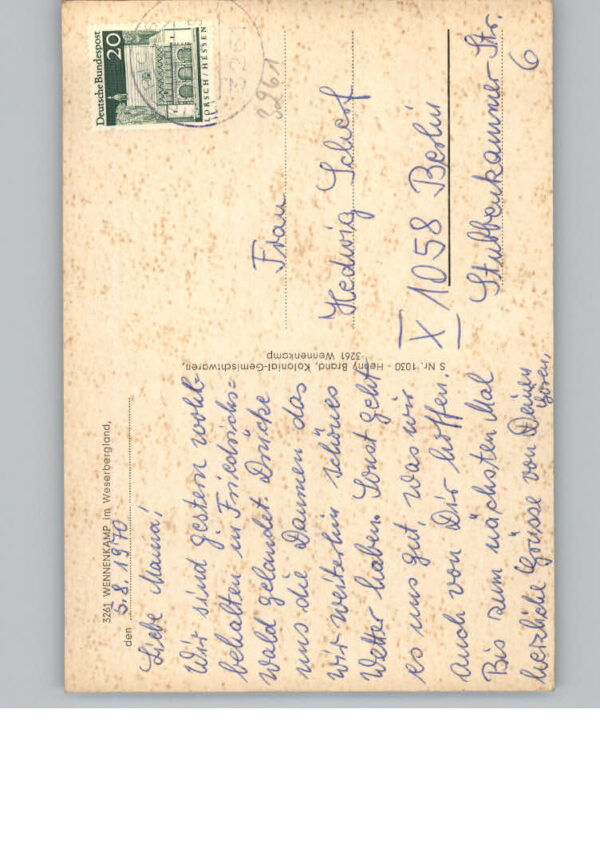 3261 WENNENKAMP im Weserbergland,
den 5.8.1970
Liebe Mama!
Wir sind gestern wohl-
behalten in Friedrichs=
wald gelandet. Drücke
uns die Daumen das
wir weiterhin schönes
Wetter haben. Sonst geht
es uns gut, was wir
auch von Dir hoffen.
Bis zum nächsten Mal
herzliche Grüsse von Deinen
S Nr. 1030 - Henny Brand, Kolonial-Gemischtwaren,
3261 Wennenkamp
Deutsche Bundespost
20
LORSCH/HESSEN
3261
3261
Frau
Hedwig Scherf
X 1058 Berlin
Stubbenkammer-Str.
6